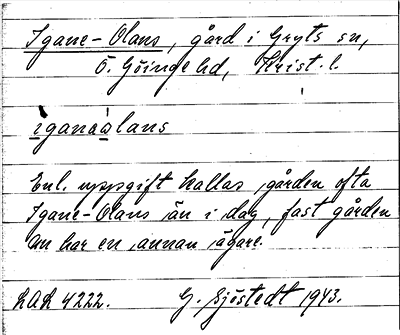 Igane-Olans, gård i Gryts sn,
Ö. Göinge hd, Krist. l.
iganaàlans
Enl. uppgift kallas gården ofta
Igane-Olans än i dag, fast gården
nu har en annan ägare.
LAL 4222. G. Sjöstedt 1943.